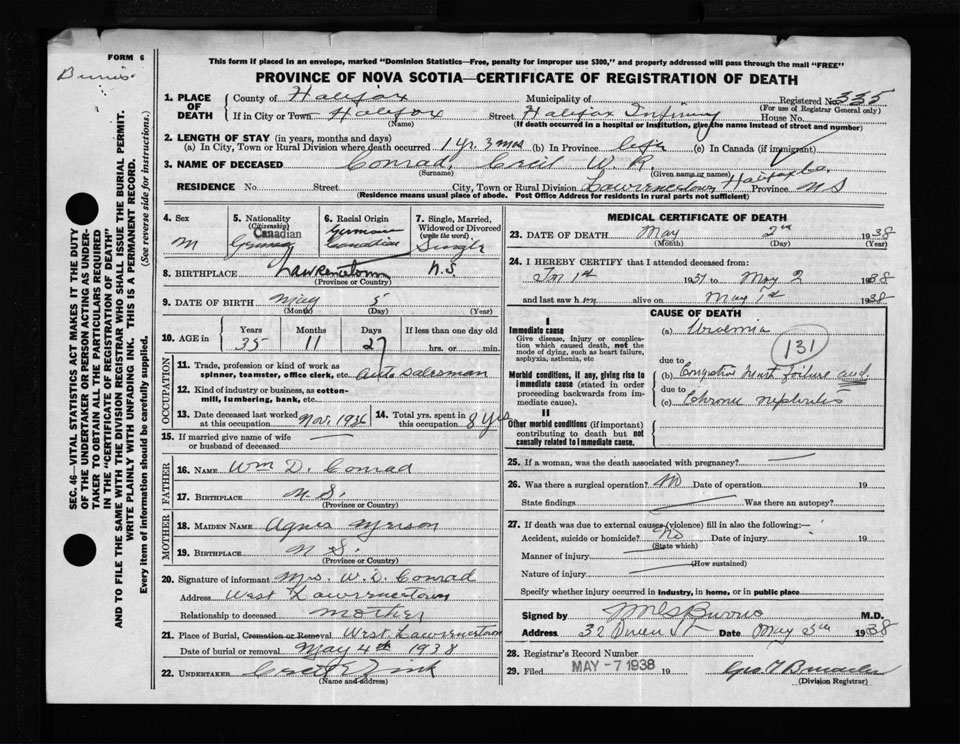 FORM 6
Burris
This form if placed in an envelope, marked "Dominion Statistics—Free, penalty for improper use $300," and properly addressed will pass through the mail "FREE"
PROVINCE OF NOVA SCOTIA—CERTIFICATE OF REGISTRATION OF DEATH
SEC. 46—VITAL STATISTICS ACT MAKES IT THE DUTY
OF THE UNDERTAKER OR PERSON ACTING AS UNDER-
TAKER TO OBTAIN ALL THE PARTICULARS REQUIRED
IN THE "CERTIFICATE OF REGISTRATION OF DEATH"
AND TO FILE THE SAME WITH THE DIVISION REGISTRAR WHO SHALL ISSUE THE BURIAL PERMIT.
WRITE PLAINLY WITH UNFADING INK. THIS IS A PERMANENT RECORD.
Every item of information should be carefully supplied. (See reverse side for instructions.)
1. PLACE OF DEATH County of Halifax Municipality of Registered No. 335
(For use of Registrar General only)
If in City or Town Halifax Street Halifax Infirmry House No.
(Name) (If death occurred in a hospital or institution, give the name instead of street and number)
2. LENGTH OF STAY (in years, months and days)
(a) In City, Town or Rural Division where death occurred 1 Yr. 3 mos (b) In Province life (c) In Canada (if immigrant)
3. NAME OF DECEASED Conrad, Cecil W. R.
(Surname) (Given name or names)
RESIDENCE No. Street City, Town or Rural Division Lawrencetown Halifax Co. Province N S
(Residence means usual place of abode. Post Office Address for residents in rural parts not sufficient)
4. Sex M
5. Nationality (Citizenship) Canadian
6. Racial Origin German Canadian
7. Single, Married, Widowed or Divorced (write the word) Single
8. BIRTHPLACE Lawrencetown N.S.
(Province or Country)
9. DATE OF BIRTH May 5
(Month) (Day) (Year)
10. AGE in Years 35 Months 11 Days 27 If less than one day old hrs. or min.
OCCUPATION
11. Trade, profession or kind of work as spinner, teamster, office clerk, etc. auto salesman
12. Kind of industry or business, as cotton-mill, lumbering, bank, etc.
13. Date deceased last worked at this occupation Nov. 1936 14. Total yrs. spent in this occupation 8 yrs
15. If married give name of wife or husband of deceased
FATHER
16. NAME Wm D. Conrad
17. BIRTHPLACE N. S.
(Province or Country)
MOTHER
18. MAIDEN NAME Agnes
19. BIRTHPLACE N. S.
(Province or Country)
20. Signature of informant Mrs. W. D. Conrad
Address West Lawrencetown
Relationship to deceased mother
21. Place of Burial, Cremation or Removal West Lawrencetown
Date of burial or removal May 4th 1938
22. UNDERTAKER Zink
(Name and address)
MEDICAL CERTIFICATE OF DEATH
23. DATE OF DEATH May 2nd 1938
(Month) (Day) (Year)
24. I HEREBY CERTIFY that I attended deceased from:
Jn 1st 1937 to May 2 1938
and last saw him alive on May 1st 1938
CAUSE OF DEATH
I
Immediate cause
Give disease, injury or complication which caused death, not the mode of dying, such as heart failure, asphyxia, asthenia, etc
(a) Uroemia
131
due to
Morbid conditions, if any, giving rise to immediate cause (stated in order proceeding backwards from immediate cause).
(b) Congestive Heart Failure and
due to
(c) Chronic nephritis
II
Other morbid conditions (if important) contributing to death but not causally related to immediate cause.
25. If a woman, was the death associated with pregnancy?
26. Was there a surgical operation? No Date of operation 19
State findings Was there an autopsy?
27. If death was due to external causes (violence) fill in also the following:—
Accident, suicide or homicide? No Date of injury 19
(State which)
Manner of injury
(How sustained)
Nature of injury
Specify whether injury occurred in industry, in home, or in public place
Signed by Burris M.D.
Address 32 St Date May 5th 1938
28. Registrar's Record Number
29. Filed MAY -7 1938 19
(Division Registrar)